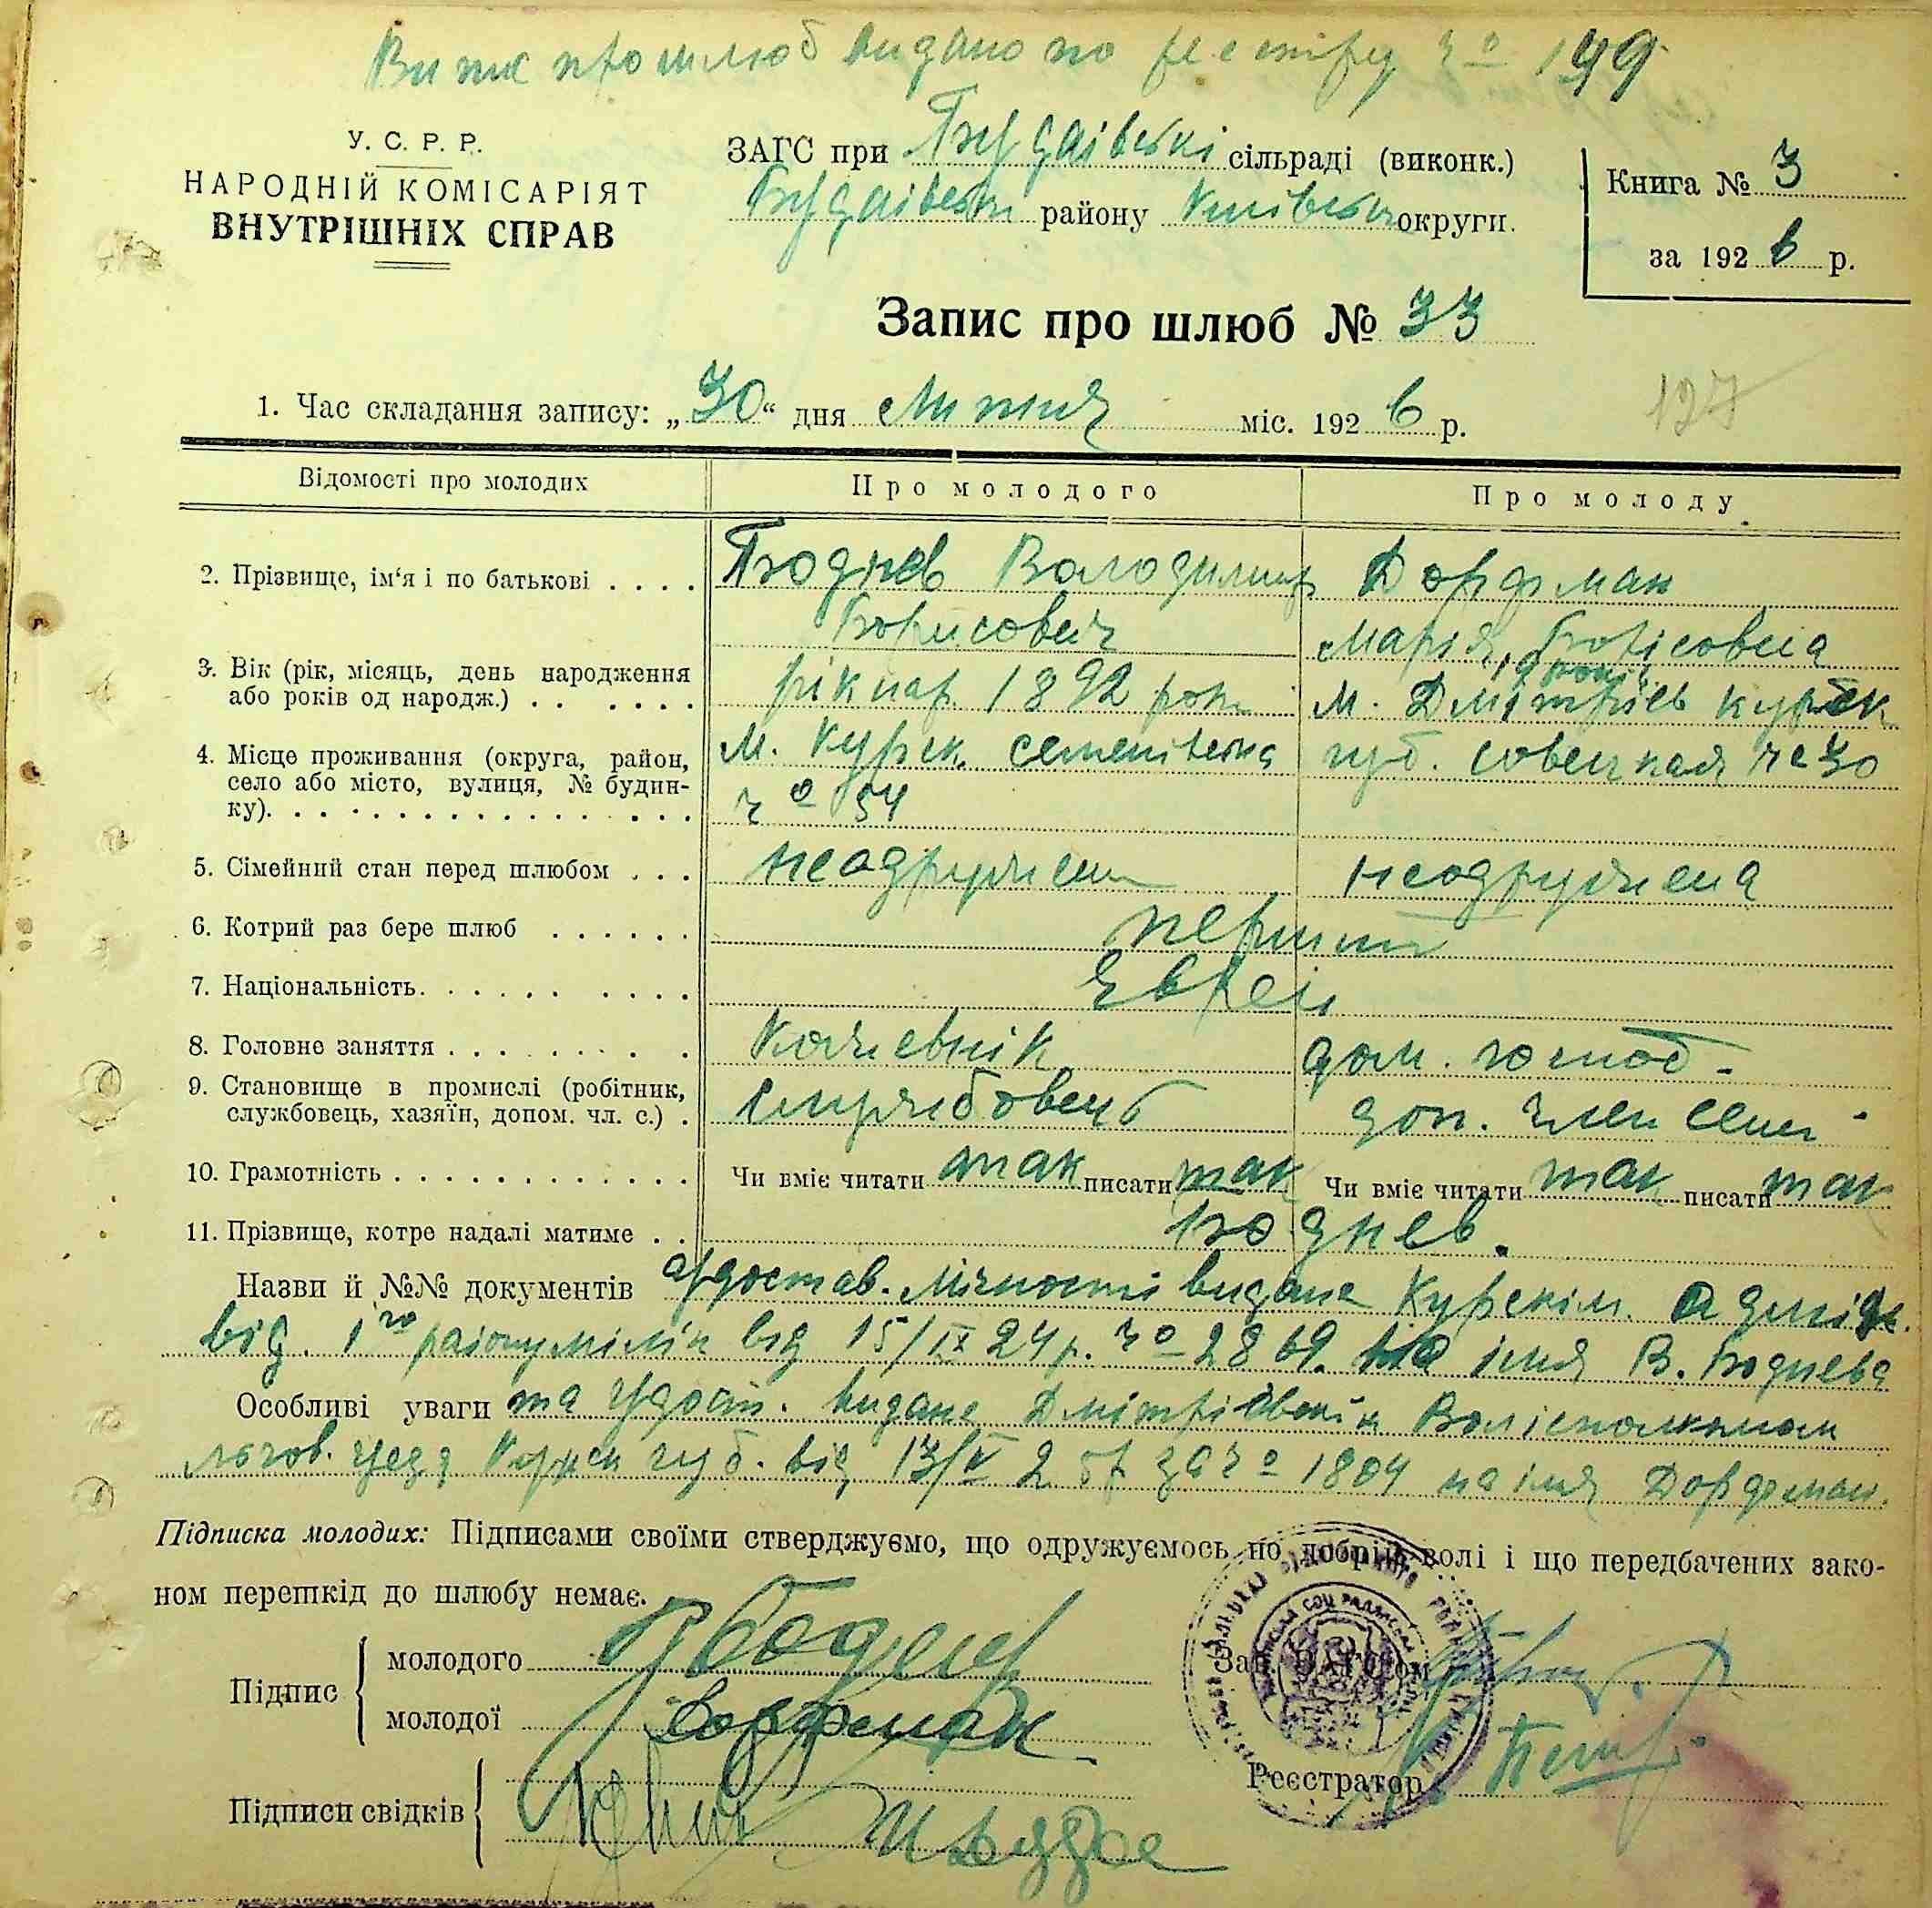 Випис про шлюб видано по реєстру № 199
У. С. Р. Р.
НАРОДНІЙ КОМІСАРІЯТ
ВНУТРІШНІХ СПРАВ
ЗАГС при Будаівські сільраді (виконк.)
Будаівськ району Київськ округи.
Книга № 3
за 1926 р.
Запис про шлюб № 33
127
1. Час складання запису: „30“ дня Липня міс. 1926 р.
Відомості про молодих
Про молодого
Про молоду
2. Прізвище, ім‘я і по батькові
Боднев Володимир
Борисович
Дорфман
Марія Борісовна
3. Вік (рік, місяць, день народження
або років од народж.)
рік нар. 1892 рок
19 років
4. Місце проживання (округа, район,
село або місто, вулиця, № будин-
ку).
м. Курск. семенівська
№ 54
м. Дмітріев курск
губ. совецкая № 30
5. Сімейний стан перед шлюбом
неодружен
неодружена
6. Котрий раз бере шлюб
перший
7. Національність
Евреи
8. Головне заняття
Кожевнік
дом. господ.
9. Становище в промислі (робітник,
службовець, хазяїн, допом. чл. с.)
службовець
доп. член семї
10. Грамотність
Чи вміє читати так писати так
Чи вміє читати так писати так
11. Прізвище, котре надалі матиме
Боднев.
Назви й №№ документів удостов. лічності видане Курскім. Адмін.
від. 1го раіону міліц від 15/IX 24 р. № 2869 на імя В. Боднева
Особливі уваги та удост. видане Дмітріевскім Волісполкомом
Льгов. уезд Курск губ. від 13/V 26 р за № 1804 на імя Дорфман.
Підписка молодих: Підписами своїми стверджуємо, що одружуємось по добрій волі і що передбачених зако-
ном перешкід до шлюбу немає.
Підпис
молодого В Боднев
молодої Дорфман
Зав. ЗАГС'ом
Реєстратор
Підписи свідків